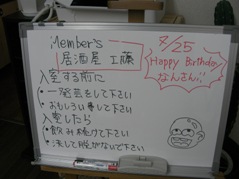 Member's
居酒屋 工藤
8/25
Happy Birthday
なんさん!!
入室する前に
・一発芸をして下さい
・おもしろい事して下さい
入室したら
・飲み続けて下さい
・決して脱がないで下さい